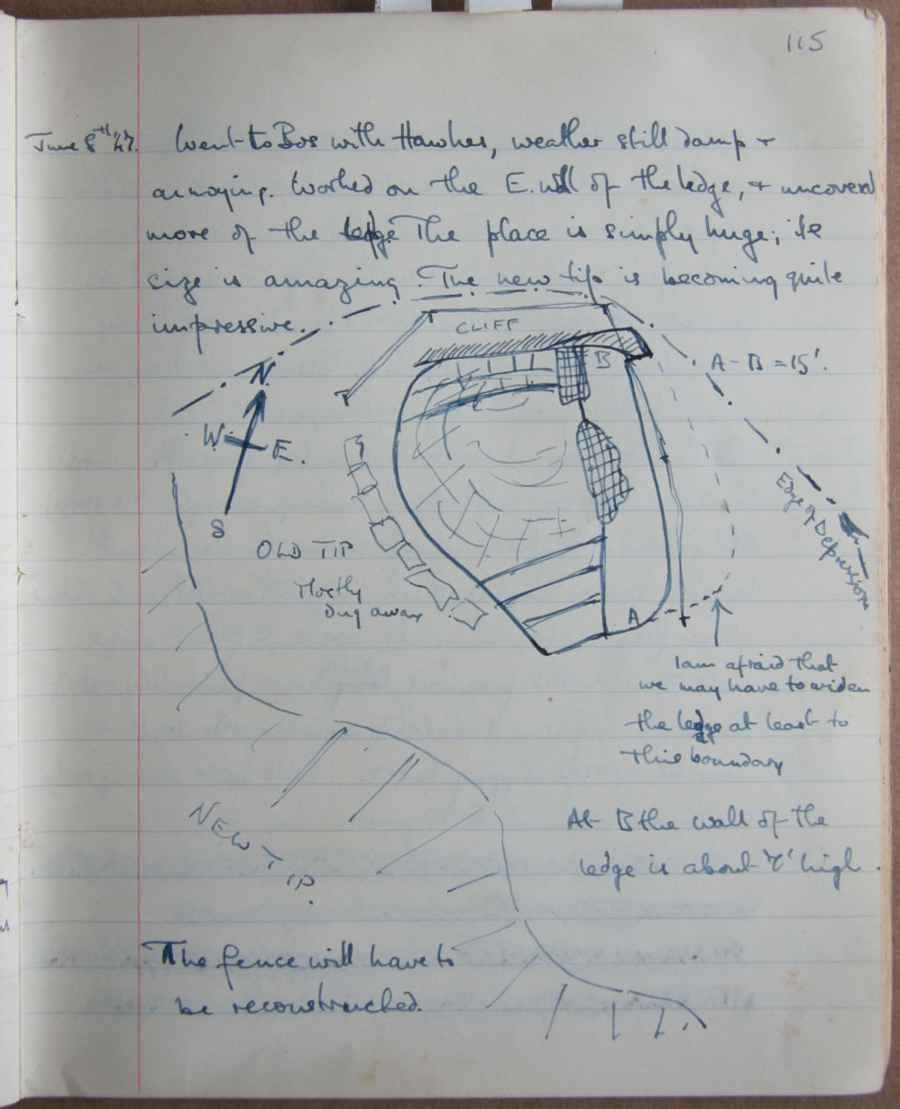 115
June 8th 47. Went to Bos with Hawkes, weather still damp +
annoying. Worked on the E. wall of the ledge, + uncovered
more of the ledge The place is simply huge; its
size is amazing. The new tip is becoming quite
impressive.
CLIFF
B
A-B = 15'.
N.
W
E.
S
Edge of Depression
OLD TIP
Mostly
Dug away
A
I am afraid that
we may have to widen
the ledge at least to
this boundary
NEW TIP.
At B the wall of the
ledge is about high.
The fence will have to
be reconstructed.